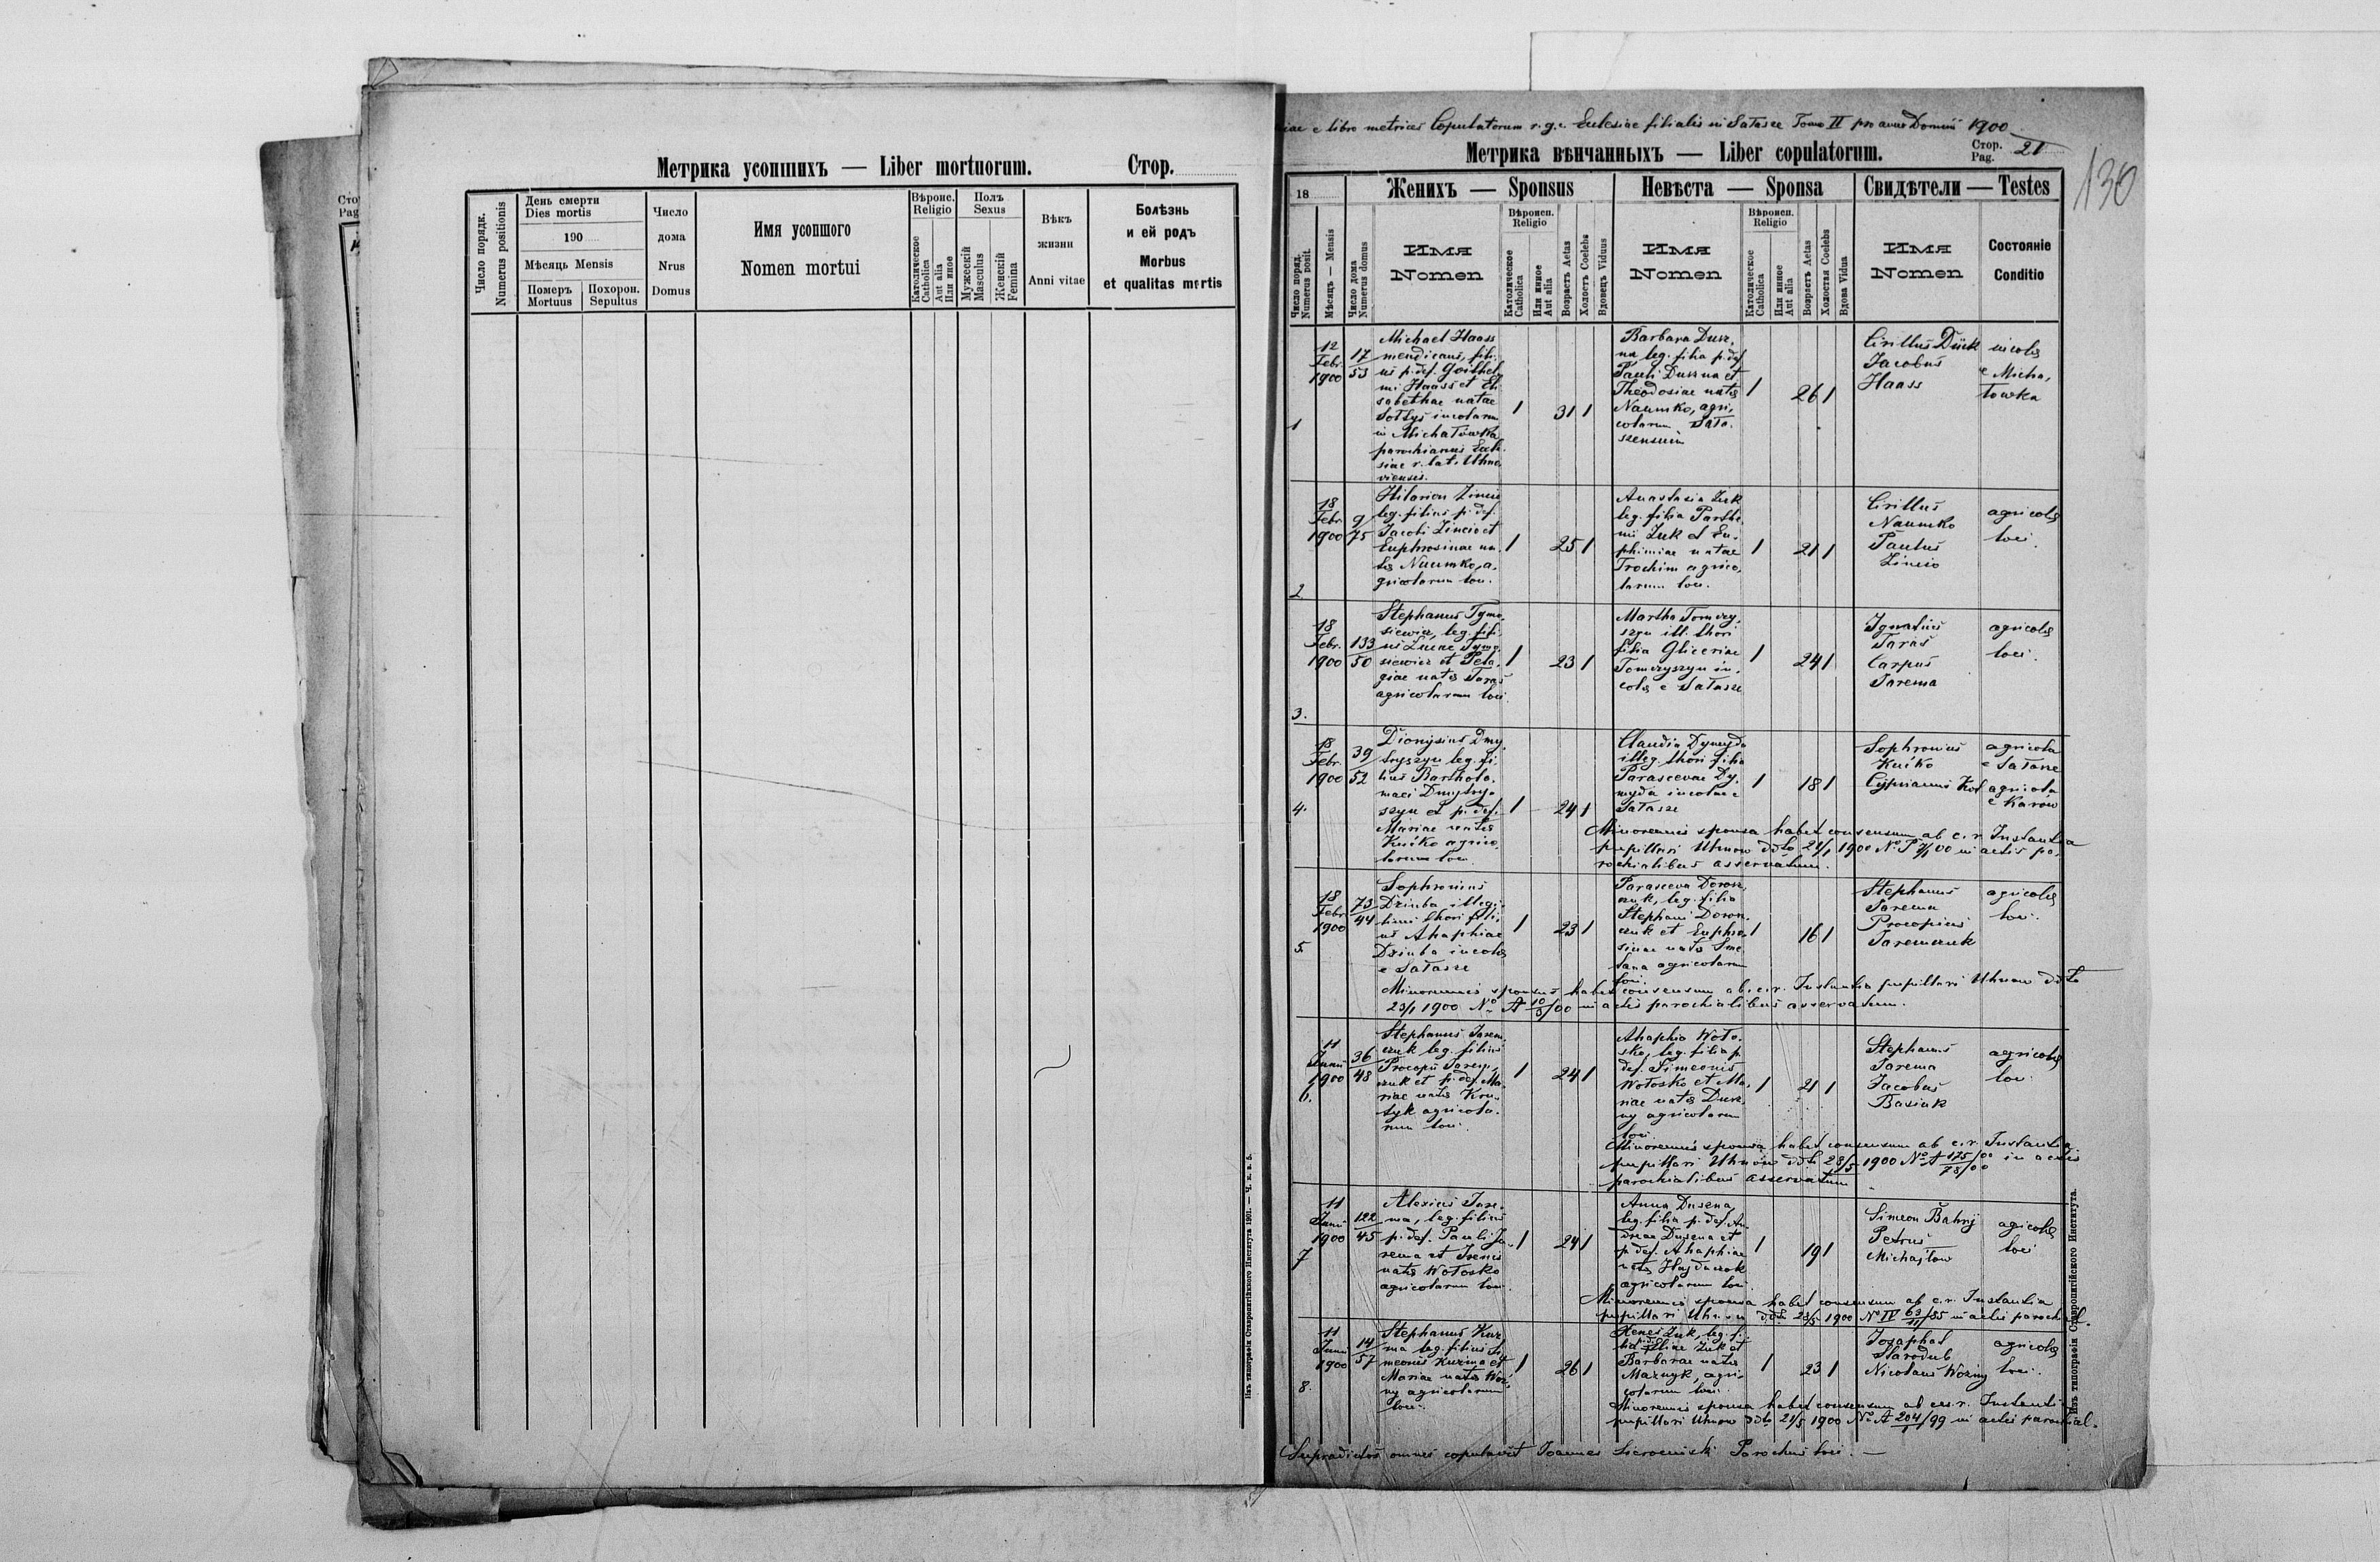 Метрика усопшихъ — Liber mortuorum.
Стор.
Число порядк.
Numerus positionis
День смерти
Dies mortis
190
Мѣсяць Mensis
Померъ
Mortuus
Похорон.
Sepultus
Число
дома
Nrus
Domus
Имя усопшого
Nomen mortui
Вѣроис.
Religio
Католическое
Catholica
Aut alia
Или иное
Полъ
Sexus
Мужескій
Masculus
Женскій
Femina
Вѣкъ
жизни
Anni vitae
Болѣзнь
и ей родъ
Morbus
et qualitas mortis
e libro metrices Copulatorum r. g. c. Eclesiae filialis in Sałasze Tomo II pro anno Domini 1900
Метрика вѣнчанныхъ — Liber copulatorum.
Стор.
Pag. 21
130
18
Женихъ — Sponsus
Невѣста — Sponsa
Свидѣтели — Testes
Число поряд.
Numerus posit.
Мѣсяць — Mensis
Число дома
Numerus domus
Имя
Nomen
Вѣроисп.
Religio
Католическое
Catholica
Или инное
Aut alia
Возрастъ Aetas
Холостъ Coelebs
Вдовецъ Viduus
Имя
Nomen
Вѣроисп.
Religio
Католическое
Catholica
Или инное
Aut alia
Возрастъ Aetas
Холостая Coelebs
Вдова Vidua
Имя
Nomen
Состояніе
Conditio
1
12
Febr.
1900
17
53
Michael Haass
mendicans, fili
us p. def.
mi Haass et Eli
sabethae natae
Sołtys incolarum
in Michałówka
parochianus Eccle
siae r. lat. Uhno
viensis.
1 31 1
Barbara Dusz
na leg. filia p. def
Pauli Duszna et
Theodosiae natae
Naumko, agri
colarum Sała
szensium
1 26 1
Cirillus Dück
Jacobus
Haass
incolae
e Micha
łowka
2
18
Febr.
1900
9
75
Hilarion Zincio
leg. filius p. def.
Jacobi Zincio et
Euphrosinae na
tae Naumko, a
gricolarum loci.
1 25 1
Anastasia Zuk
leg. filia Parthe
mi Zuk et Eu
phimiae natae
Trochim agrico
larum loci.
1 21 1
Cirillus
Naumko
Paulus
Zincio
agricolae
loci.
3.
18
Febr.
1900
133
50
Stephanus Tymo
siewicz, leg. fili
us Lucae Tymo
siewicz et Pela
giae natae Taras
agricolarum loci
1 23 1
Martha Tomczy
szyn ill. thori
filia Gliceriae
Tomczyszyn in
colae e Sałasze
1 24 1
Ignatius
Taras
Carpus
Jarema
agricolae
loci.
4.
18
Febr.
1900
39
52
Dionysius Dmy
tryszyn leg. fi
lius Bartholo
maei Dmytry
szyn et p. def.
Mariae natae
Kućko agrico
larum loci.
1 24 1
Claudia Dymyda
illeg. thori filia
Parascevae Dy
myda incolae e
Sałasze
1 18 1
Sophronius
Kućko
Cyprianus Kot
agricola
e Sałasze
agricola
e Karów
Minorennis sponsa habet consensum ab c. r. Instantia
pupillari Uhnow ddto 24/1 1900 No P 7/1 00 in actis pa
rochialibus asservatum.
5.
18
Febr.
1900
73
44
Sophronius
Dziuba illegi
timi thori fili
us Ahaphiae
Dziuba incolae
e Sałasze
1 23 1
Parasceva Dorosz
czuk, leg. filia
Stephani Dorosz
czuk et Euphro
sinae natae Sme
tana agricolarum
loci.
1 16 1
Stephanus
Jarema
Procopius
Jaremczuk
agricolae
loci.
Minorennis sponsus habet consensum ab c. r. Instantia pupillari Uhnow ddto
23/1 1900 No A 10/00 in actis parochialibus asservatum.
6.
11
Junii
1900
36
48
Stephanus Jarem
czuk leg. filius
Procopii Jarem
czuk et p. def. Ma
riae natae Kru
tyk agricola
rum loci.
1 24 1
Ahaphia Woło
sko, leg. filia p.
def. Simeonis
Wołosko et Ma
riae natae Dusz
ny agricolarum
loci.
1 21 1
Stephanus
Jarema
Jacobus
Basiuk
agricolae
loci
Minorennis sponsa habet consensum ab c. r. Instantia
pupillari Uhnów ddto 28/5 1900 No A 175/00 in actis
parochialibus asservatum
7
11
Junii
1900
122
45
Alexius Jare
ma, leg. filius
p. def. Pauli Ja
rema et Irenis
natae Wołosko
agricolarum loci.
1 24 1
Anna Dusena
leg. filia p. def. An
dreae Dusena et
p. def. Ahaphiae
natae Hajdaczok
agricolarum loci.
1 19 1
Simeon Bahrij
Petrus
Michajłow
agricolae
loci
Minorennis sponsa habet consensum ab c. r. Instantia
pupillari Uhnow ddto 28/5 1900 No IV 63/85 in actis parochial.
8.
11
Junii
1900
14
57
Stephanus Kuz
ma leg. filius Si
meonis Kuzma et
Mariae natae Woź
ny agricolarum
loci.
1 26 1
Xenes Zuk, leg. fi
lia Eliae Zuk et
Barbarae natae
Mazuryk, agri
colarum loci.
1 23 1
Josaphat
Starodub
Nicolaus Woźny
agricolae
loci.
Minorennis sponsa habet consensum ab c. r. Instanti
pupillari Uhnow ddto 21/5 1900 No A 204/99 in actis parochial.
Supradictos omnes copulavit Joannes Sieroczniski Parochus loci. —
Изъ типографіи Ставропигійского Института 1901. — Ч. к. в. 5.
Изъ типографіи Ставропигійского Института.